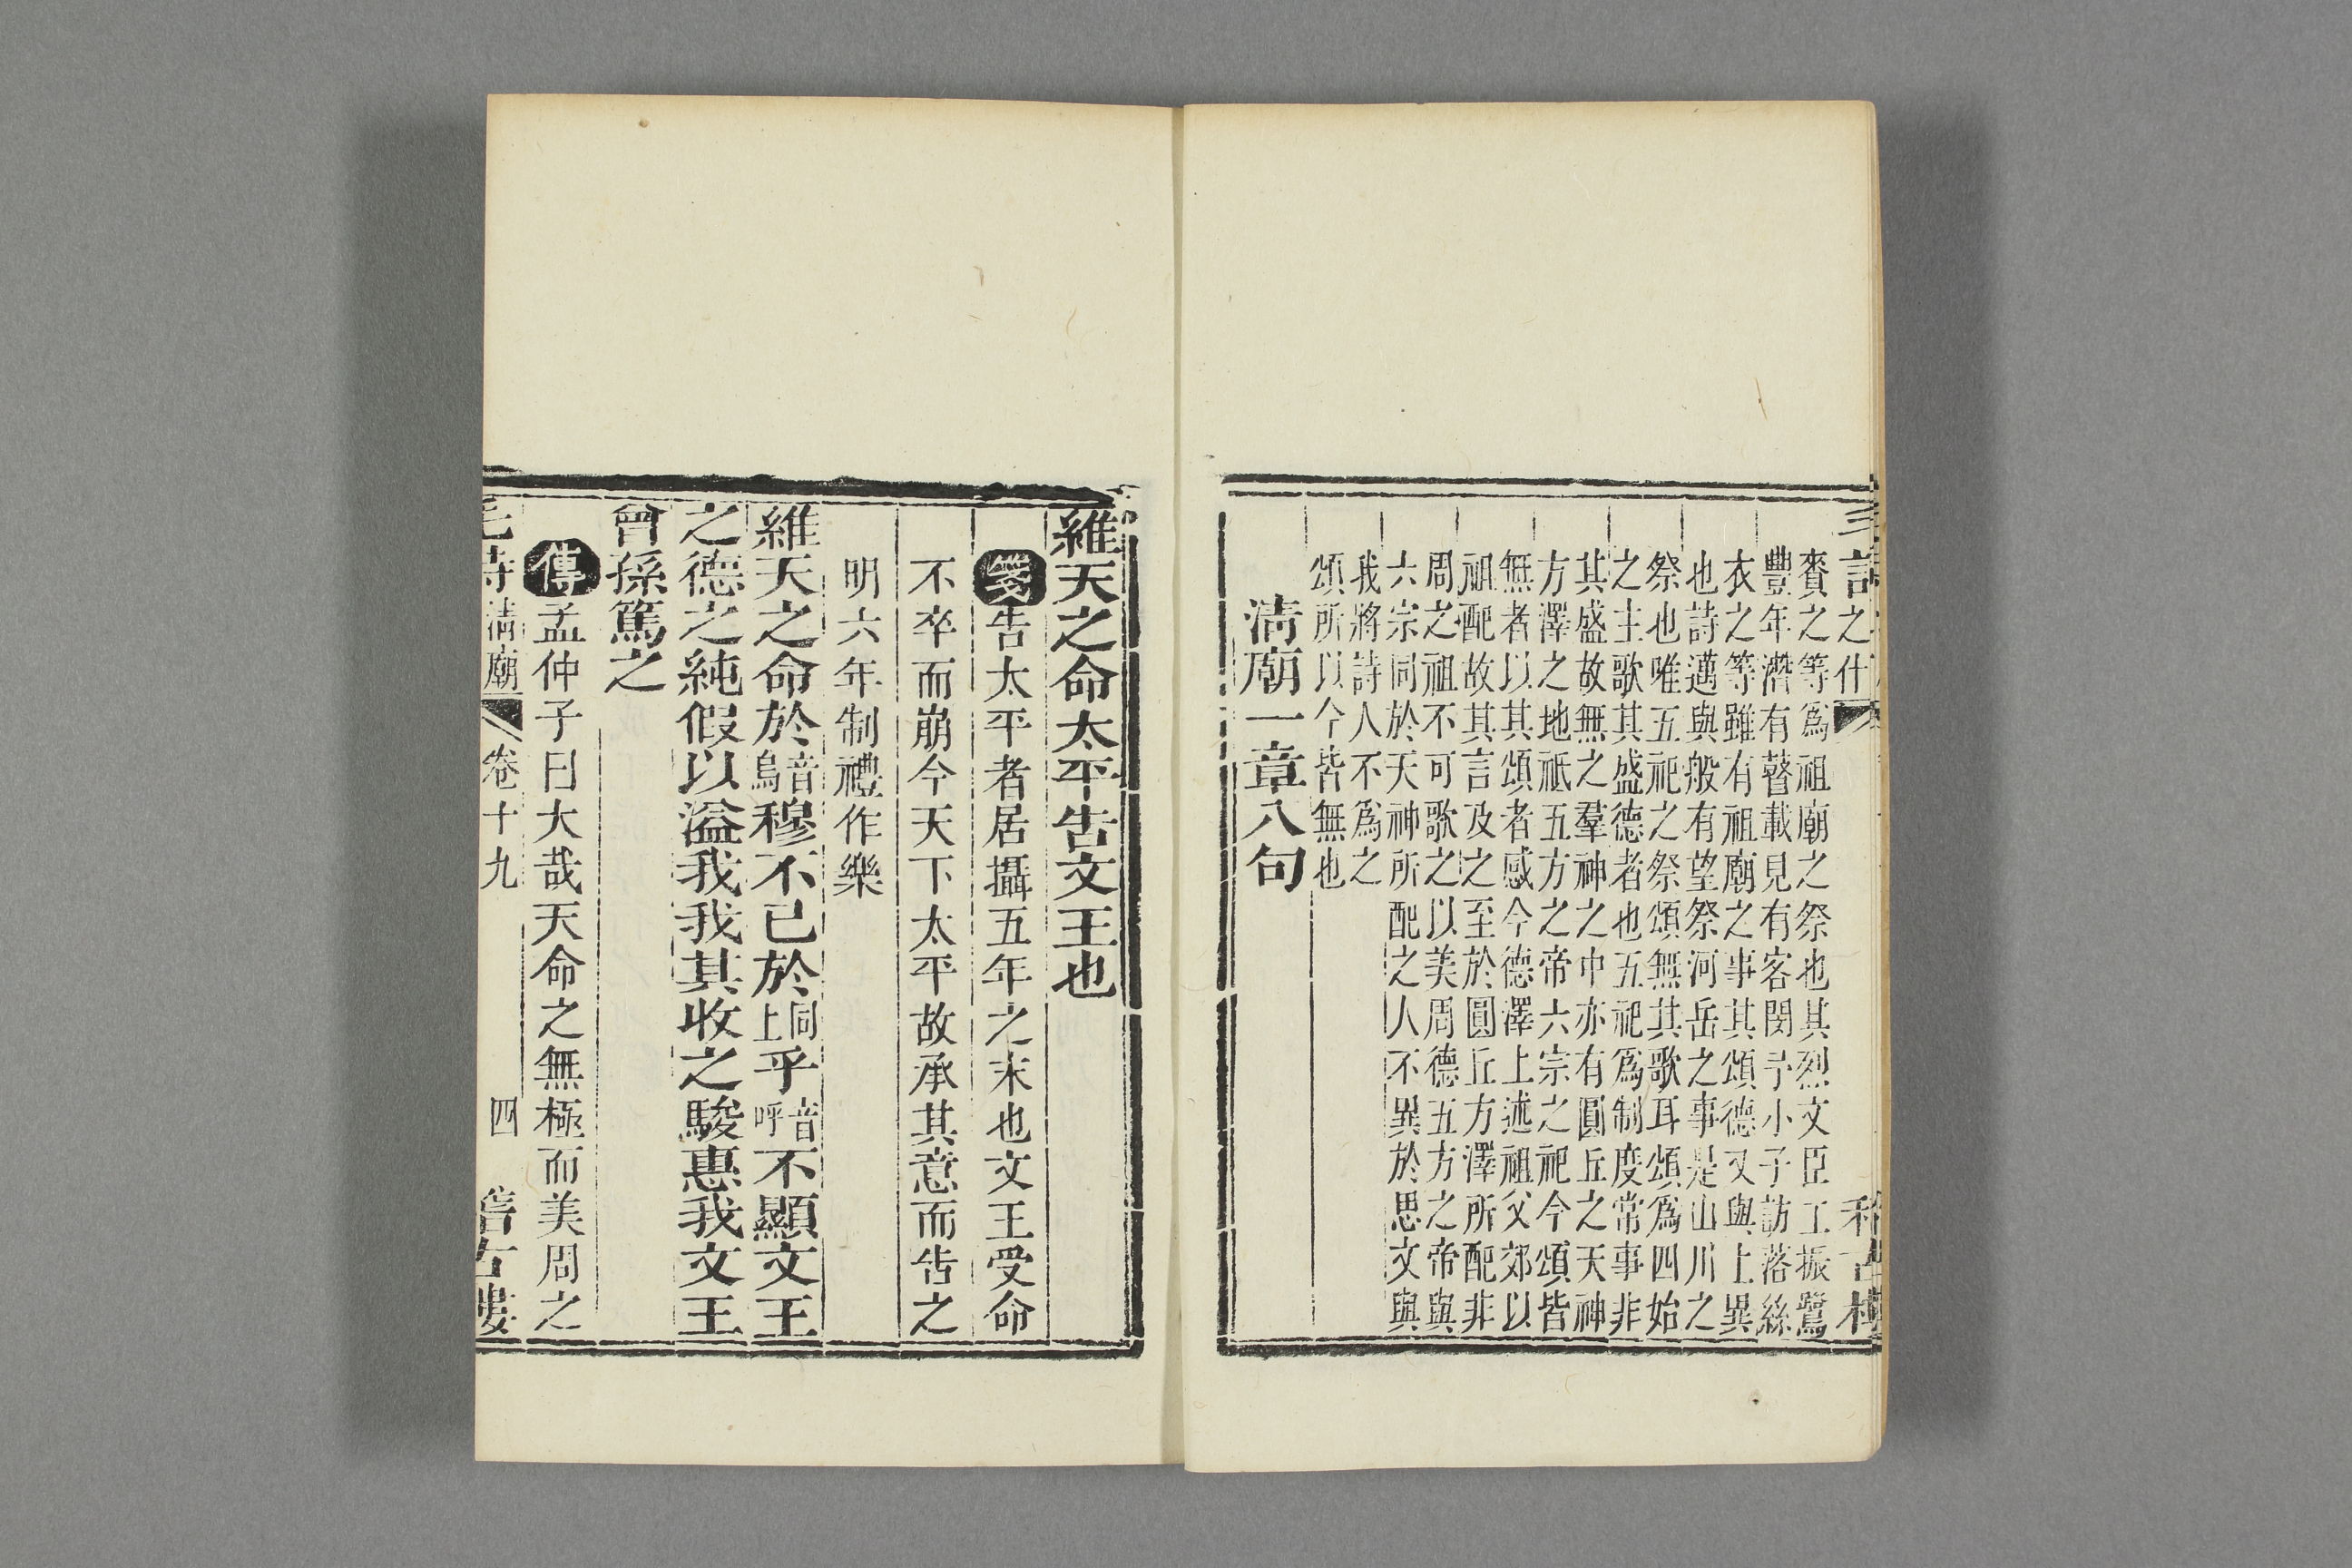 賚之等爲祖廟之祭也其烈文臣工振鷺
豐年潛有瞽載見有客閔予小子訪落絲
衣之等雖有祖廟之事其頌德又與上異
也詩邁與般有望祭河岳之事是山川之
祭也唯五祀之祭頌無其歌耳頌爲四始
之主歌其盛德者也五祀爲制度常事非
其盛故無之羣神之中亦有圓丘之天神
方澤之地祇五方之帝六宗之祀今頌皆
無者以其頌者感今德澤上述祖父郊以
祖配故其言及之至於圓丘方澤所配非
周之祖不可歌之以美周德五方之帝與
六宗同於天神所配之人不異於思文與
我將詩人不爲之
頌所以今皆無也
清廟一章八句
維天之命太平告文王也
箋告太平者居攝五年之末也文王受命
不卒而崩今天下太平故承其意而告之
明六年制禮作樂
維天之命於音烏穆不已於同上乎音呼不顯文王
之德之純假以溢我我其收之駿惠我文王
曾孫篤之
傳孟仲子曰大哉天命之無極而美周之
毛詩清廟 卷十九 四